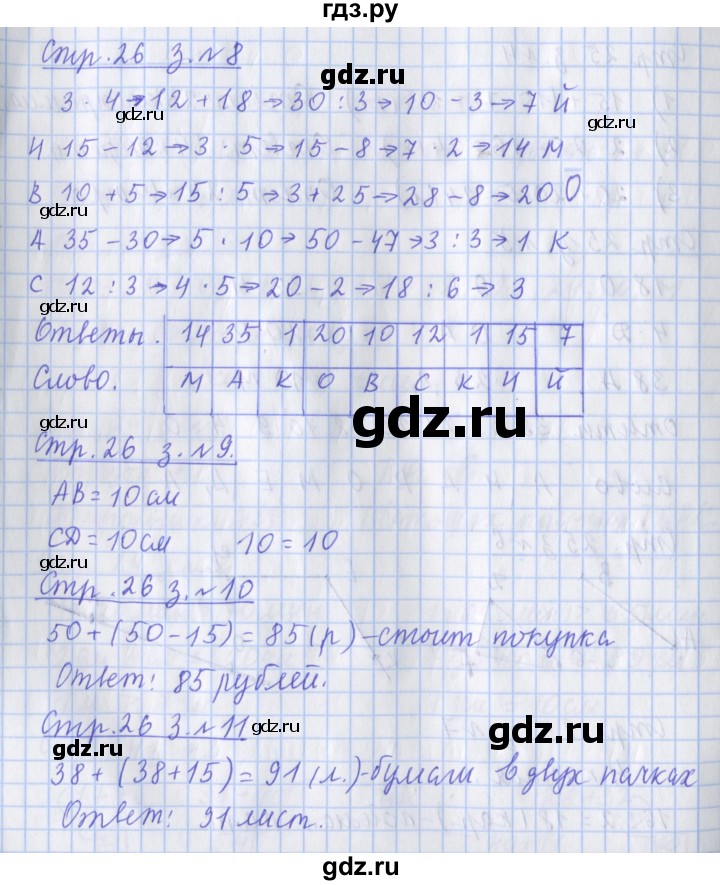 гдз.ру
Стр. 26 з. №8
gdz.ru
3 · 4 → 12 + 18 → 30 : 3 → 10 - 3 → 7 Й
gdz.ru gdz.ru
И 15 - 12 → 3 · 5 → 15 - 8 → 7 · 2 → 14 М
В 10 + 5 → 15 : 5 → 3 + 25 → 28 - 8 → 20 О
gdz.ru
А 35 - 30 → 5 · 10 → 50 - 47 → 3 : 3 → 1 К
С 12 : 3 → 4 · 5 → 20 - 2 → 18 : 6 → 3
gdz.ru
Ответы. 14 35 1 20 10 12 1 15 7
Слово. М А К О В С К И Й
gdz.ru
gdz.ru
Стр. 26 з. №9.
АВ = 10 см
СD = 10 см 10 = 10
gdz.ru
Стр. 26 з. №10
50 + (50 - 15) = 85 (р) - стоит покупка
gdz.ru
Ответ: 85 рублей.
Стр. 26 з. №11
gdz.ru gdz.ru
gdz.ru
38 + (38 + 15) = 91 (л.) - бумаги в двух пачках
Ответ: 91 лист.
gdz.ru
gdz.ru
gdz.ru